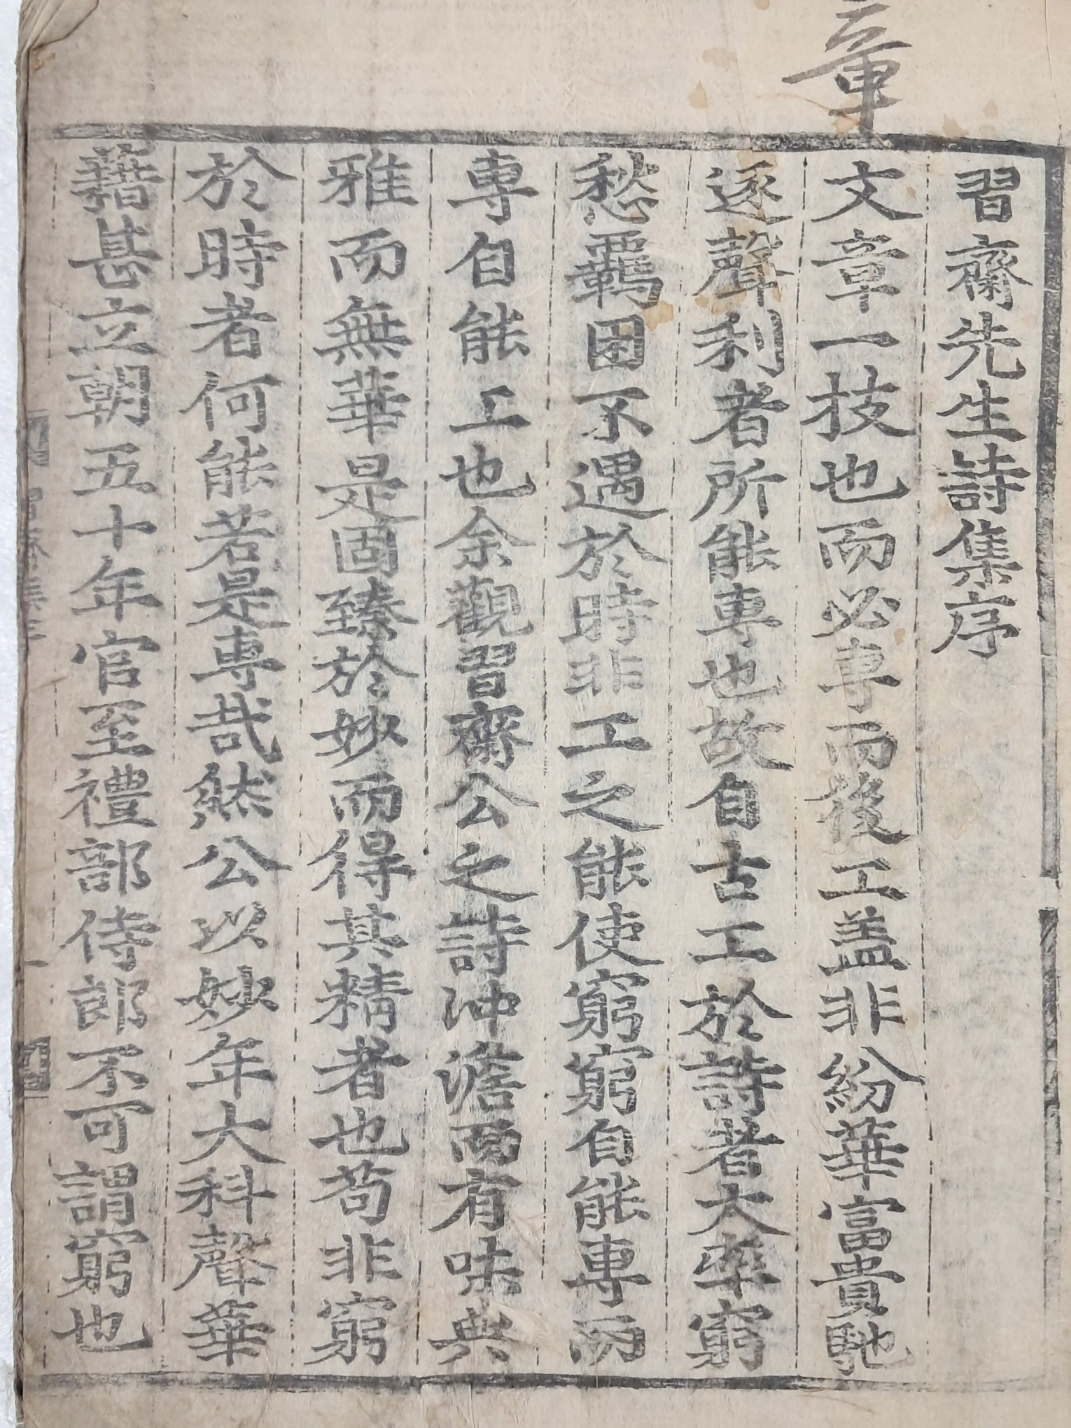 章
習齋先生詩集序
文章一技也而必專而後工盖非紛華富貴馳
逐聲利者所能專也故自古工於詩者大率窮
愁羈困不遇於時非工之能使窮窮自能專而
專自能工也余觀習齋公之詩沖澹而有味典
雅而無華是固臻於妙而得其精者也苟非窮
於時者何能若是專哉然公以妙年大科聲華
藉甚立朝五十年官至禮部侍郎不可謂窮也